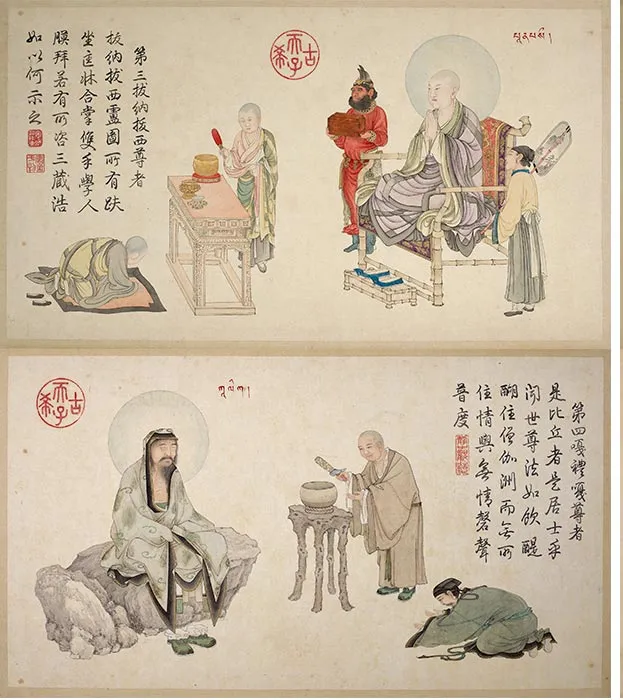 古希天子
第三拔納拔西尊者
拔納拔西靈圖所有趺
坐匡牀合掌雙手學人
膜拜若有所咨三藏浩
如以何示之
古希天子
ཀཱ་ལི་ཀ།
第四嘎禮嘎尊者
是比丘者是居士乎
聞世尊法如飲醍
醐住僧伽洲而無所
住情與無情磬聲
普度